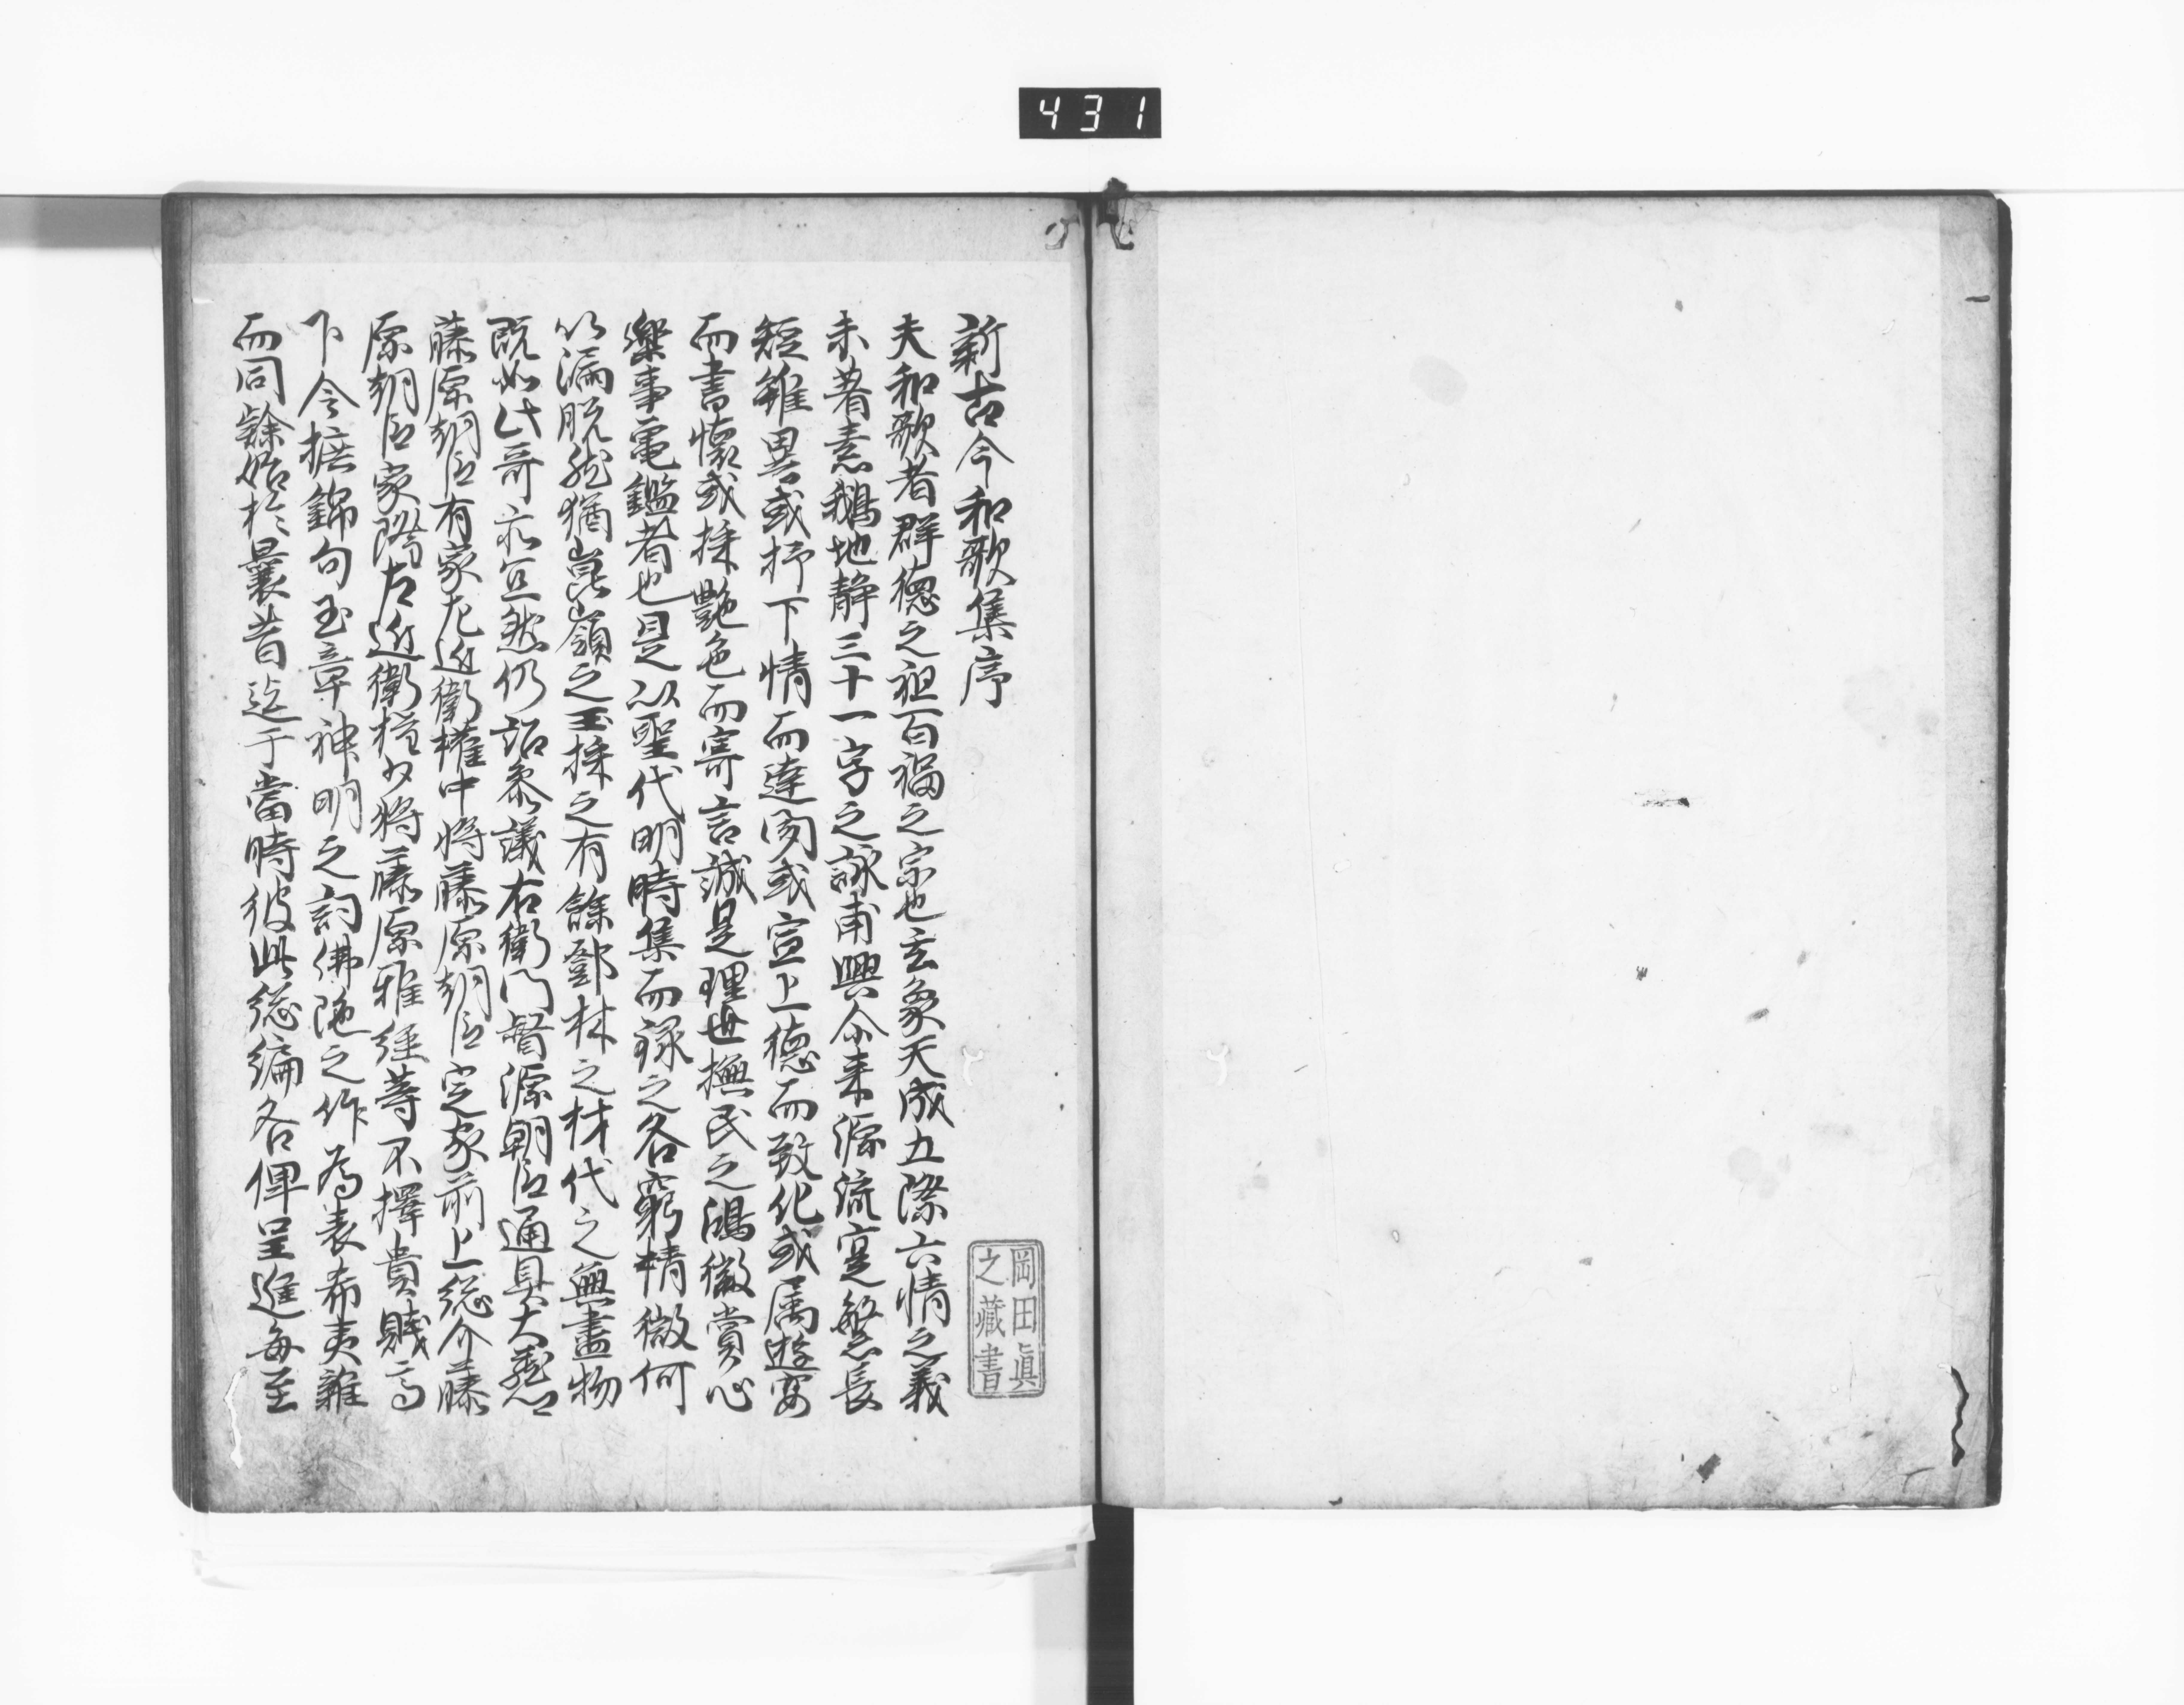 431
新古今和歌集序
夫和歌者群德之祖百福之宗也玄象天成五際六情之義
未著素鵝地静三十一字之詠甫興尓来源流寔繁長
短雖異或抒下情而達聞或宣上德而致化或属遊宴
而書懷或採艷色而寄言誠是理世撫民之鴻徽賞心
樂事龜鑑者也是以聖代明時集而録之各窮精微何
以漏脱然猶崑嶺之玉採之有餘鄧林之材代之無盡物
既如此哥亦宜然仍詔參議右衛門督源朝臣通具大蔵卿
藤原朝臣有家左近衛權中將藤原朝臣定家前上総介藤
原朝臣家隆左近衛権少將藤原雅經等不擇貴賤高
下令摭錦句玉章神明之詞佛陁之作為表希夷雜
而同餘始於曩昔迄于當時彼此総編各俾呈進每至
岡田眞
之藏書